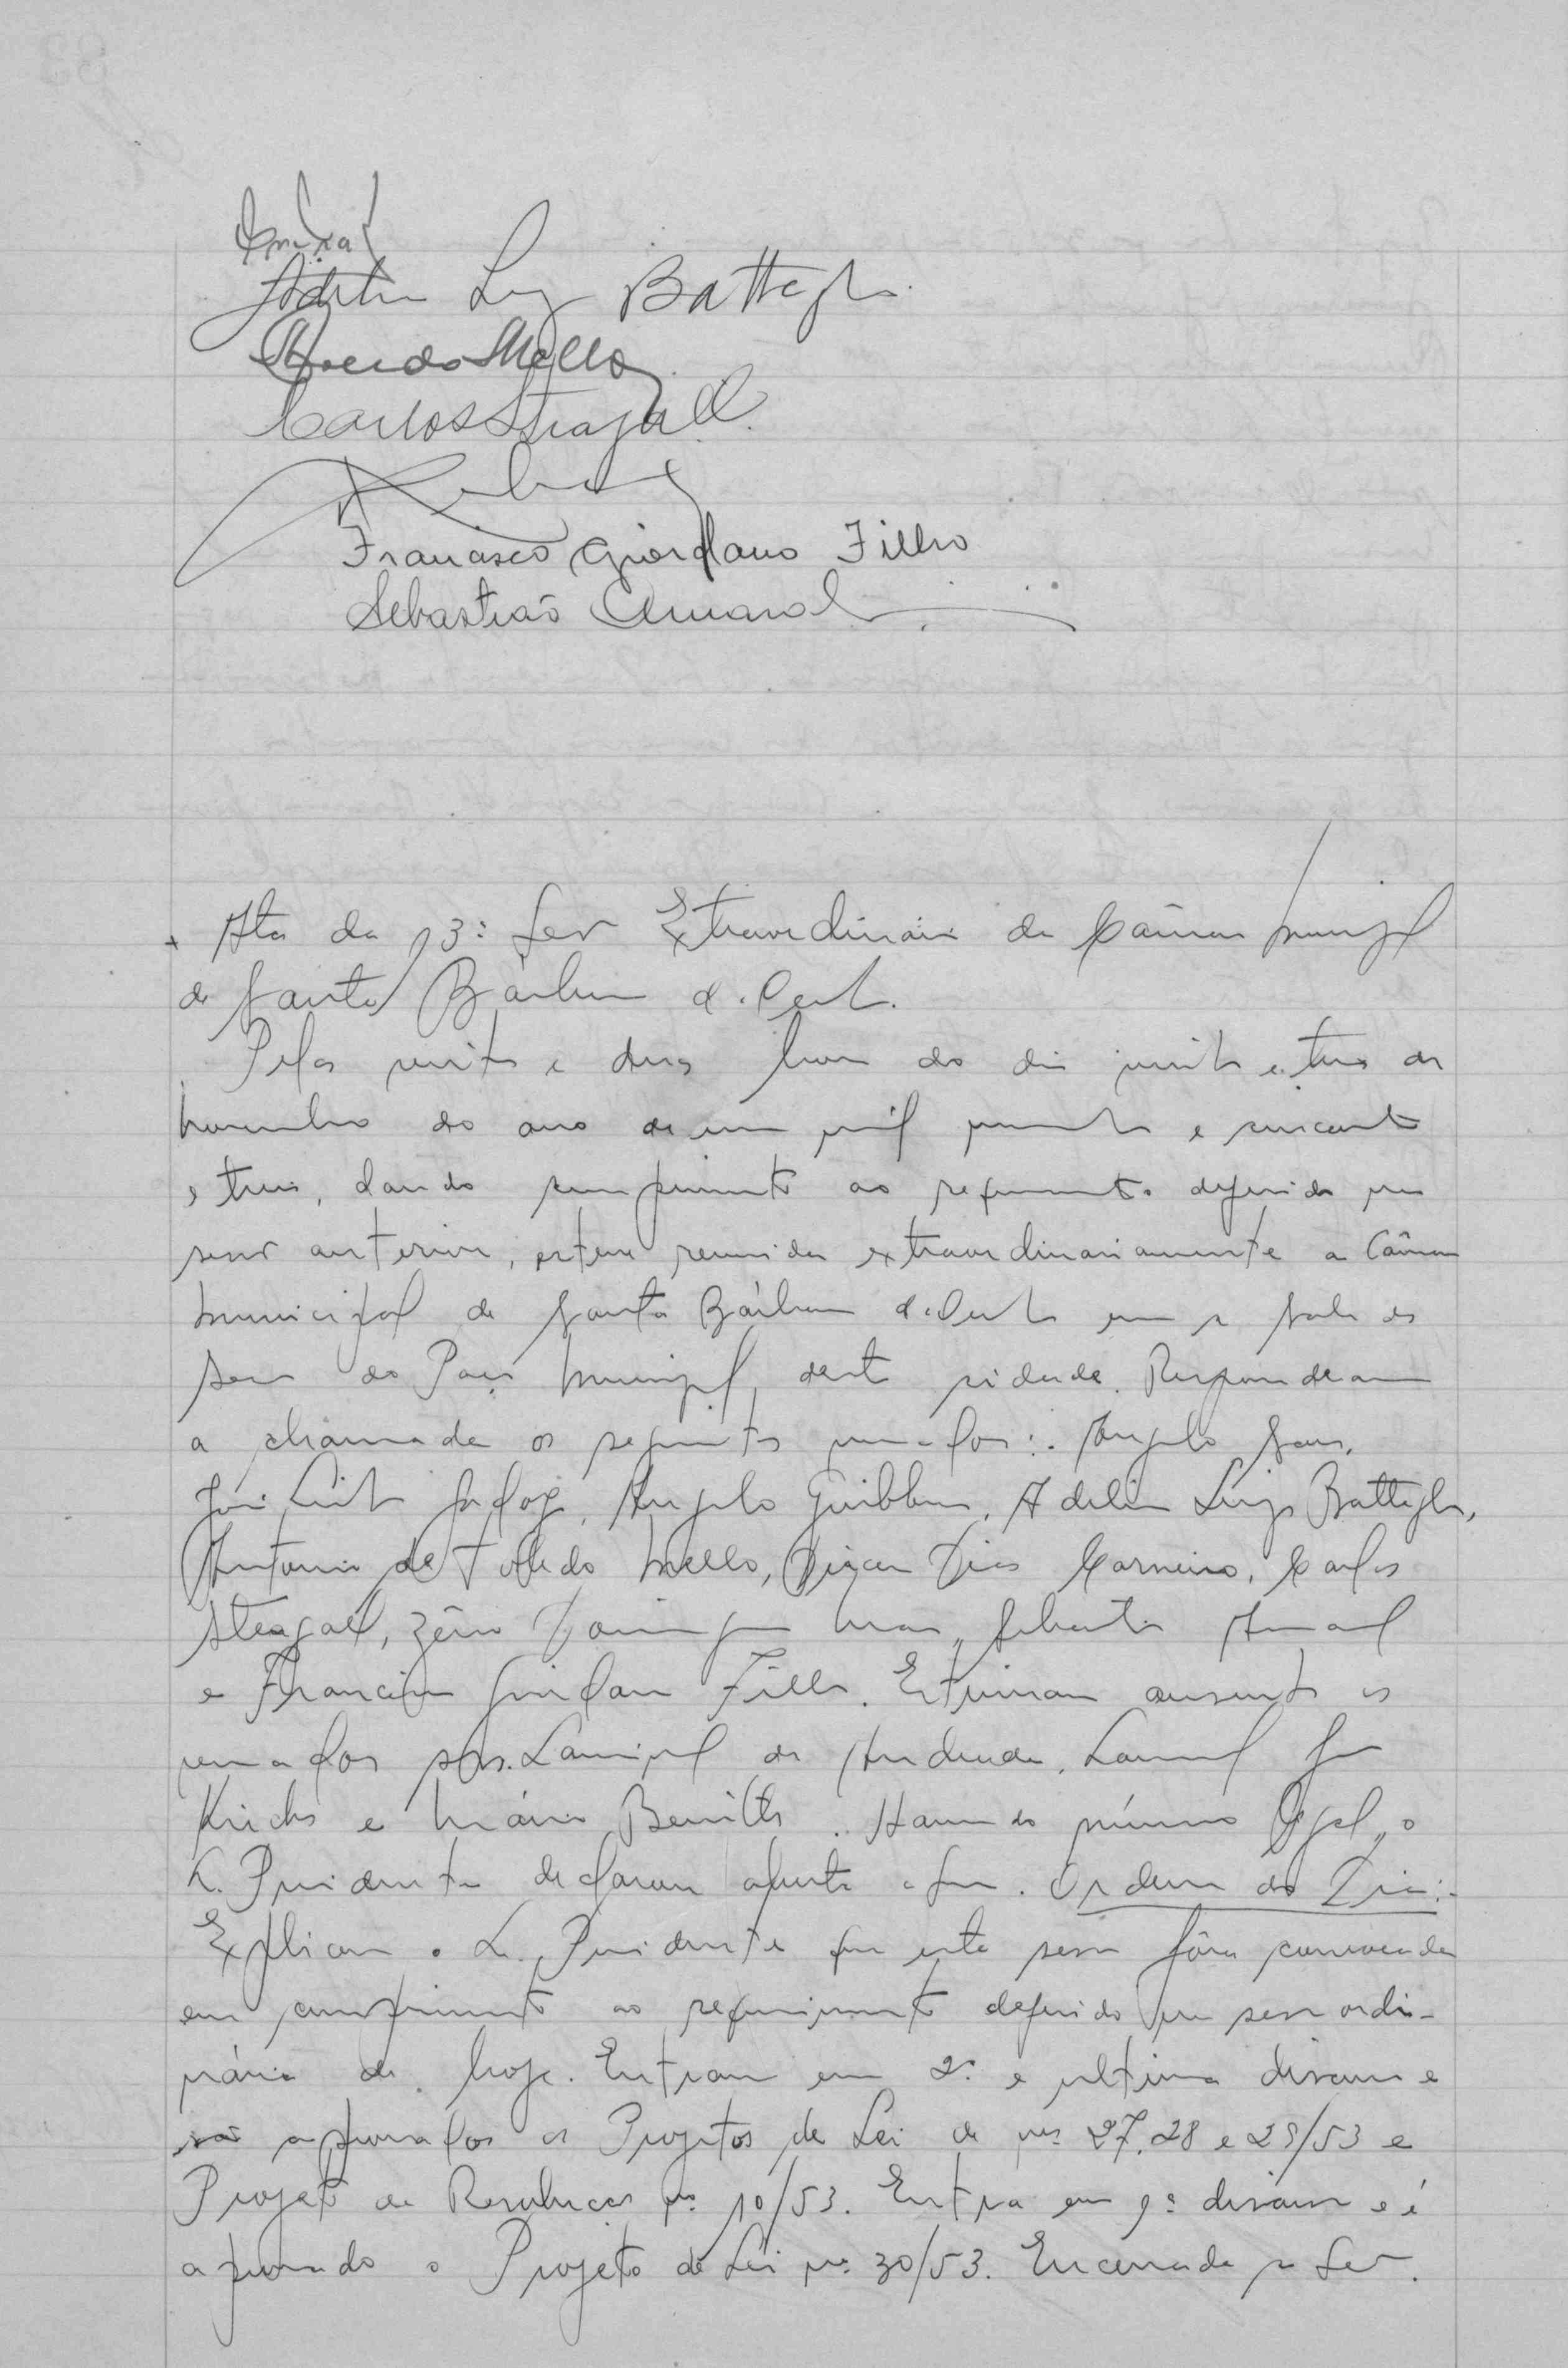 Adelino Luiz Battaglia
Toledo Mello
Carlos Steagall
Francisco Giordano Filho
Sebastião Amaral
Ata da 13ª Sessão Extraordinária da Câmara Municipal
de Santa Bárbara d'Oeste.
Pelas vinte e duas horas do dia vinte e tres de
novembro do ano de um mil novecentos e cincoenta
e tres, dando cumprimento ao requerimento deferido na
sessão anterior, esteve reunida extraordinariamente a Câmara
Municipal de Santa Bárbara d'Oeste em a sala de
sessões do Paço Municipal, desta cidade. Responderam
a chamada os seguintes vereadores: Angelo Sans,
José Luiz, Angelo Giubbina, Adelino Luiz Battaglia,
Antonio de Toledo Mello, Dirceu Dias Carneiro, Carlos
Steagall, Zêno Domingues Maia, Sebastião Amaral
e Francisco Giordano Filho. Estiveram ausentes os
vereadores srs. de Andrade,
e Mário Benitts. Havendo número legal, o
Sr. Presidente declarou aberta a sessão. Ordem do Dia:-
Explicou o Sr. Presidente que esta sessão fôra convocada
em cumprimento ao requerimento deferido na sessão ordi-
nária de hoje. Entram em 2ª e ultima discussão e
são aprovados os Projetos de Lei de nºs 27, 28 e 29/53 e
Projeto de Resolução nº 10/53. Entra em 1ª discussão e é
aprovado o Projeto de Lei nº 30/53. Encerrada a Ses.